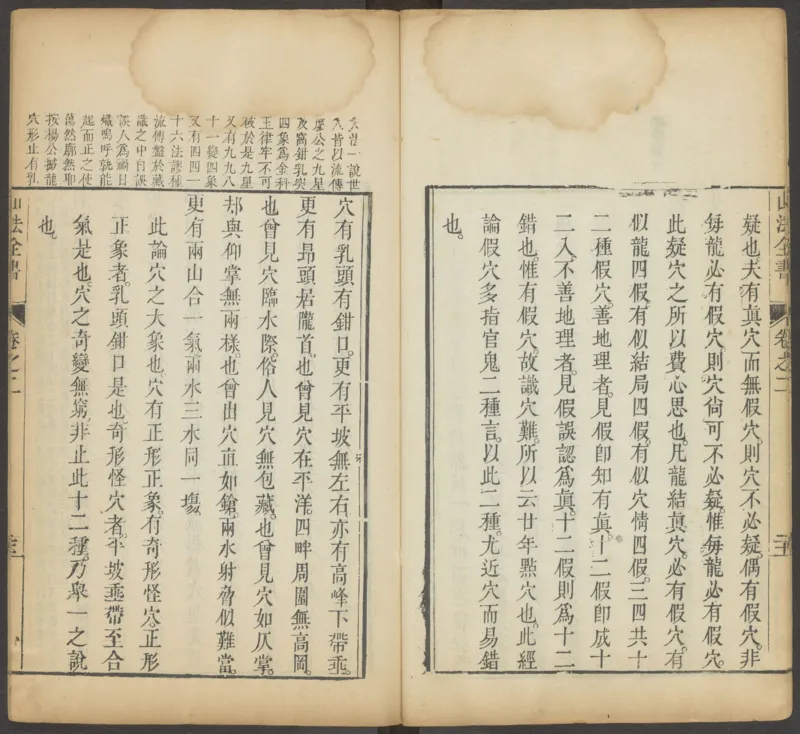 山法全書 卷之二
疑也。夫有眞穴而無假穴。則穴不必疑。偶有假穴。非
每龍必有假穴。則穴尙可不必疑。惟每龍必有假穴。
此疑穴之所以費心思也。凡龍結眞穴。必有假穴。有
似龍四假。有似結局四假。有似穴情四假。三四共十
二種假穴。善地理者。見假卽知有眞。十二假卽成十
二入。不善地理者。見假誤認爲眞。十二假則爲十二
錯也。惟有假穴。故識穴難。所以云廿年點穴也。此經
論假穴多指官鬼二種言。以此二種。尤近穴而易錯
也。
一說世
人皆以流傳
廖公之九星
及窩鉗乳突
四象爲金科
玉律牢不可
破於是九星
又有九九八
十一變四象
又有四四一
十六法謬種
流傳盤於藏
識之中自誤
誤人爲禍日
熾嗚呼孰能
起而正之使
蕩然廓然耶
按楊公撼龍
穴形止有乳
穴有乳頭有鉗口。更有平坡無左右。亦有高峰下帶垂。
更有昂頭若隴首。也曾見穴在平洋。四畔周圍無高岡。
也曾見穴臨水際。俗人見穴無包藏。也曾見穴如仄掌。
却與仰掌無兩樣。也曾出穴直如鎗。兩水射脅似難當。
更有兩山合一氣。兩水三水同一塲。
此論穴之大象也。穴有正形正象。有奇形怪穴。正形
正象者。乳頭鉗口是也。奇形怪穴者。平坡垂帶至合
氣是也。穴之奇變無窮。非止此十二種。乃舉一之說
也。
山法全書 卷之二